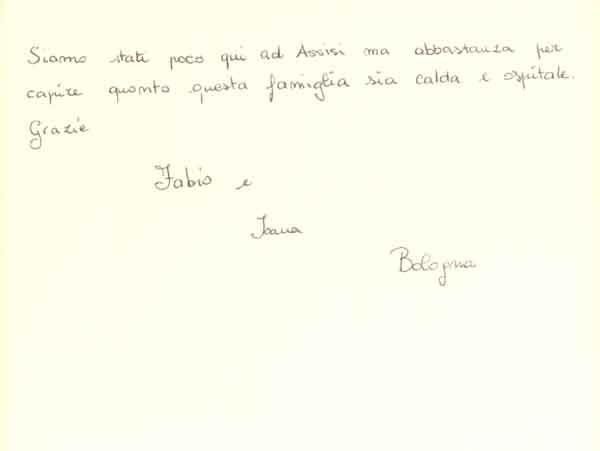 Siamo stati poco qui ad Assisi ma abbastanza per
capire quanto questa famiglia sia calda e ospitale.
Grazie
Fabio e
Ioana
Bologna